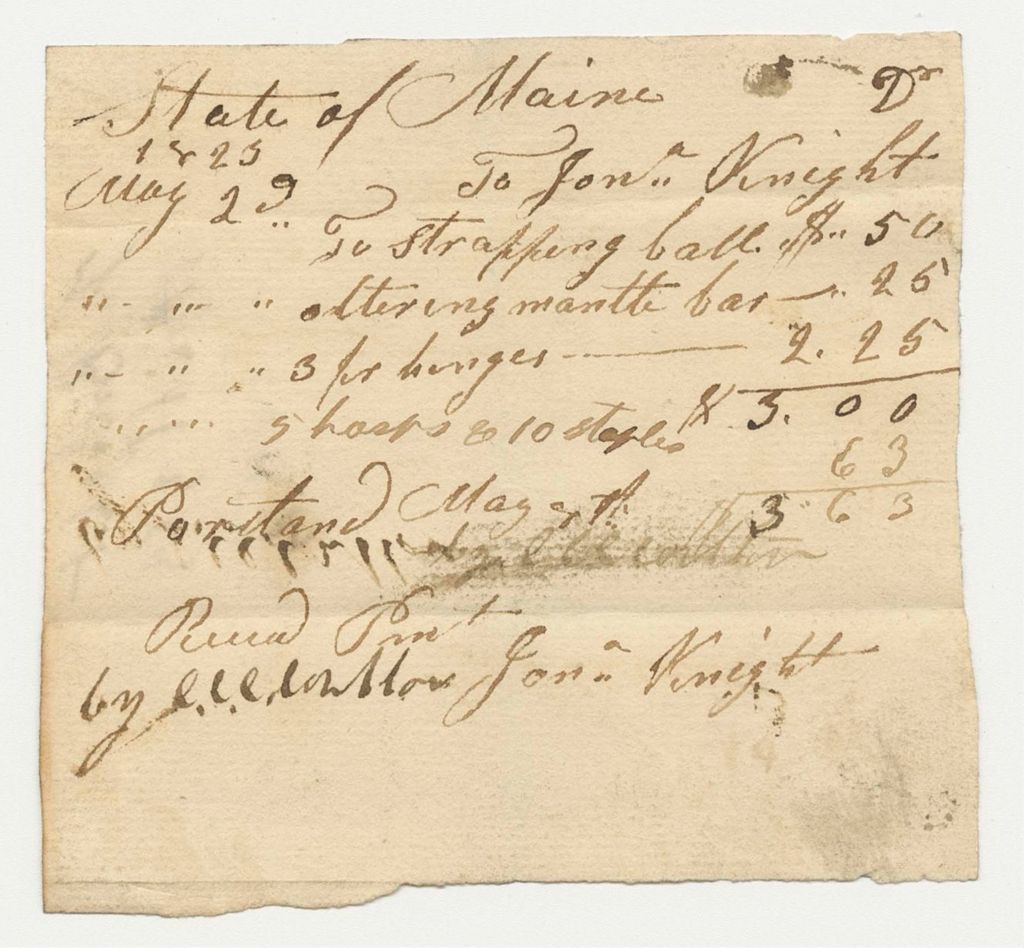 State of Maine Dr
1825
To Jonn. Knight
May 2d..
To Strapping ball $.. 50
" - " " altering mantle bar — .. 25
" - " " 3 pr hinges — 2. 25
$ 3. 00
" " 5 hasps & 10 staples 63
Portland May
3 63
Recd Pmt
by Jonn. Knight